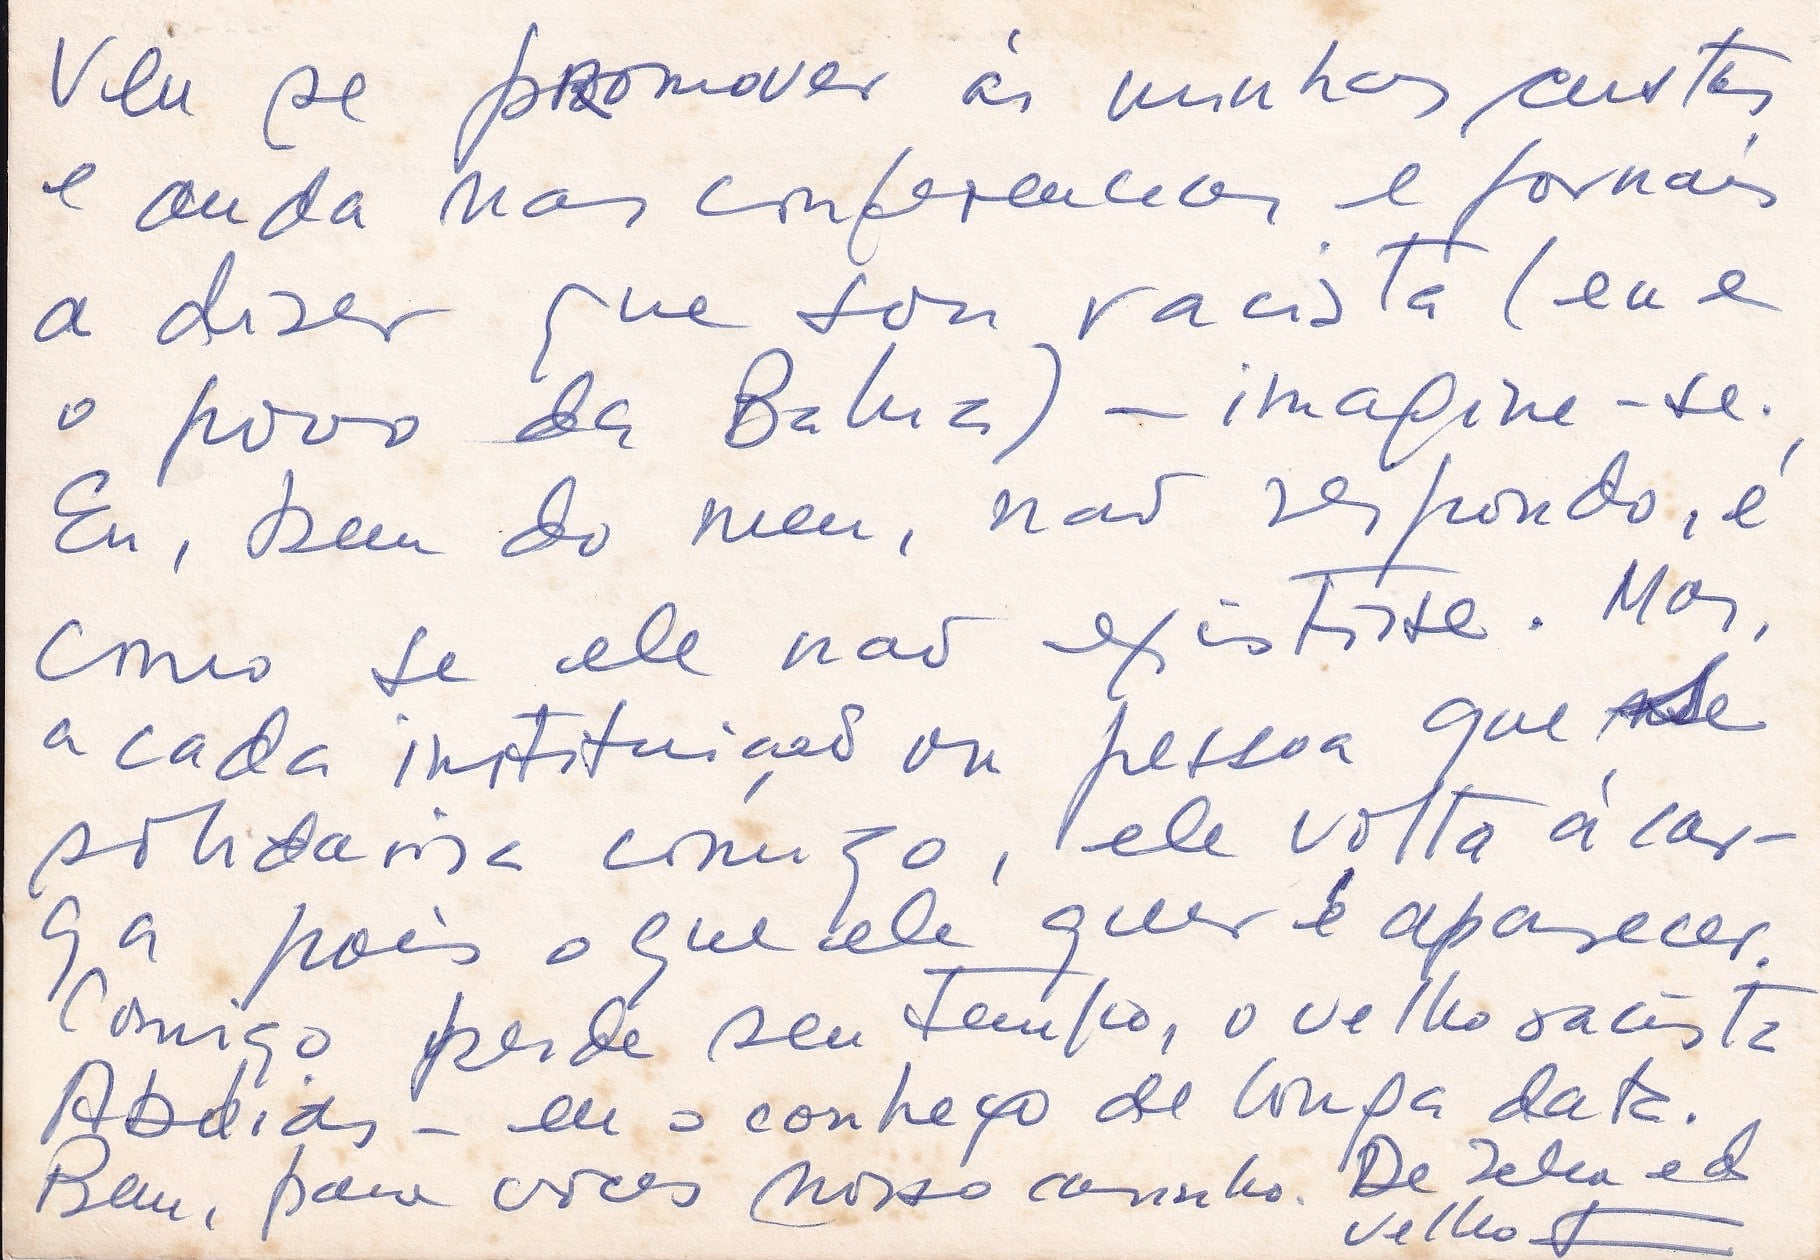 Veu se promover às minhas custas
e anda nas conferencias e jornais
a dizer que sou racista (eu e
o povo da Bahia) – imagine-se.
Eu, bem do meu, não respondo, é
como se ele não existisse. Mas,
a cada instituição ou pessoa que se
solidarisa comigo, ele volta à car-
ga pois o que ele quer é aparecer.
Comigo perde seu tempo, o velho racista
Abdias – eu o conheço de longa data.
Bem, para vocês nosso carinho. De Zelia e do
velho J